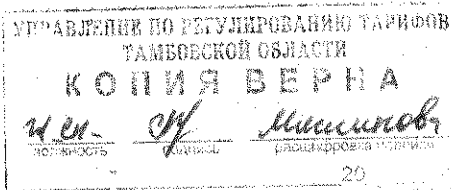 УПРАВЛЕНИЕ ПО РЕГУЛИРОВАНИЮ ТАРИФОВ
ТАМБОВСКОЙ ОБЛАСТИ
КОПИЯ ВЕРНА
должность подпись расшифровка подписи
20